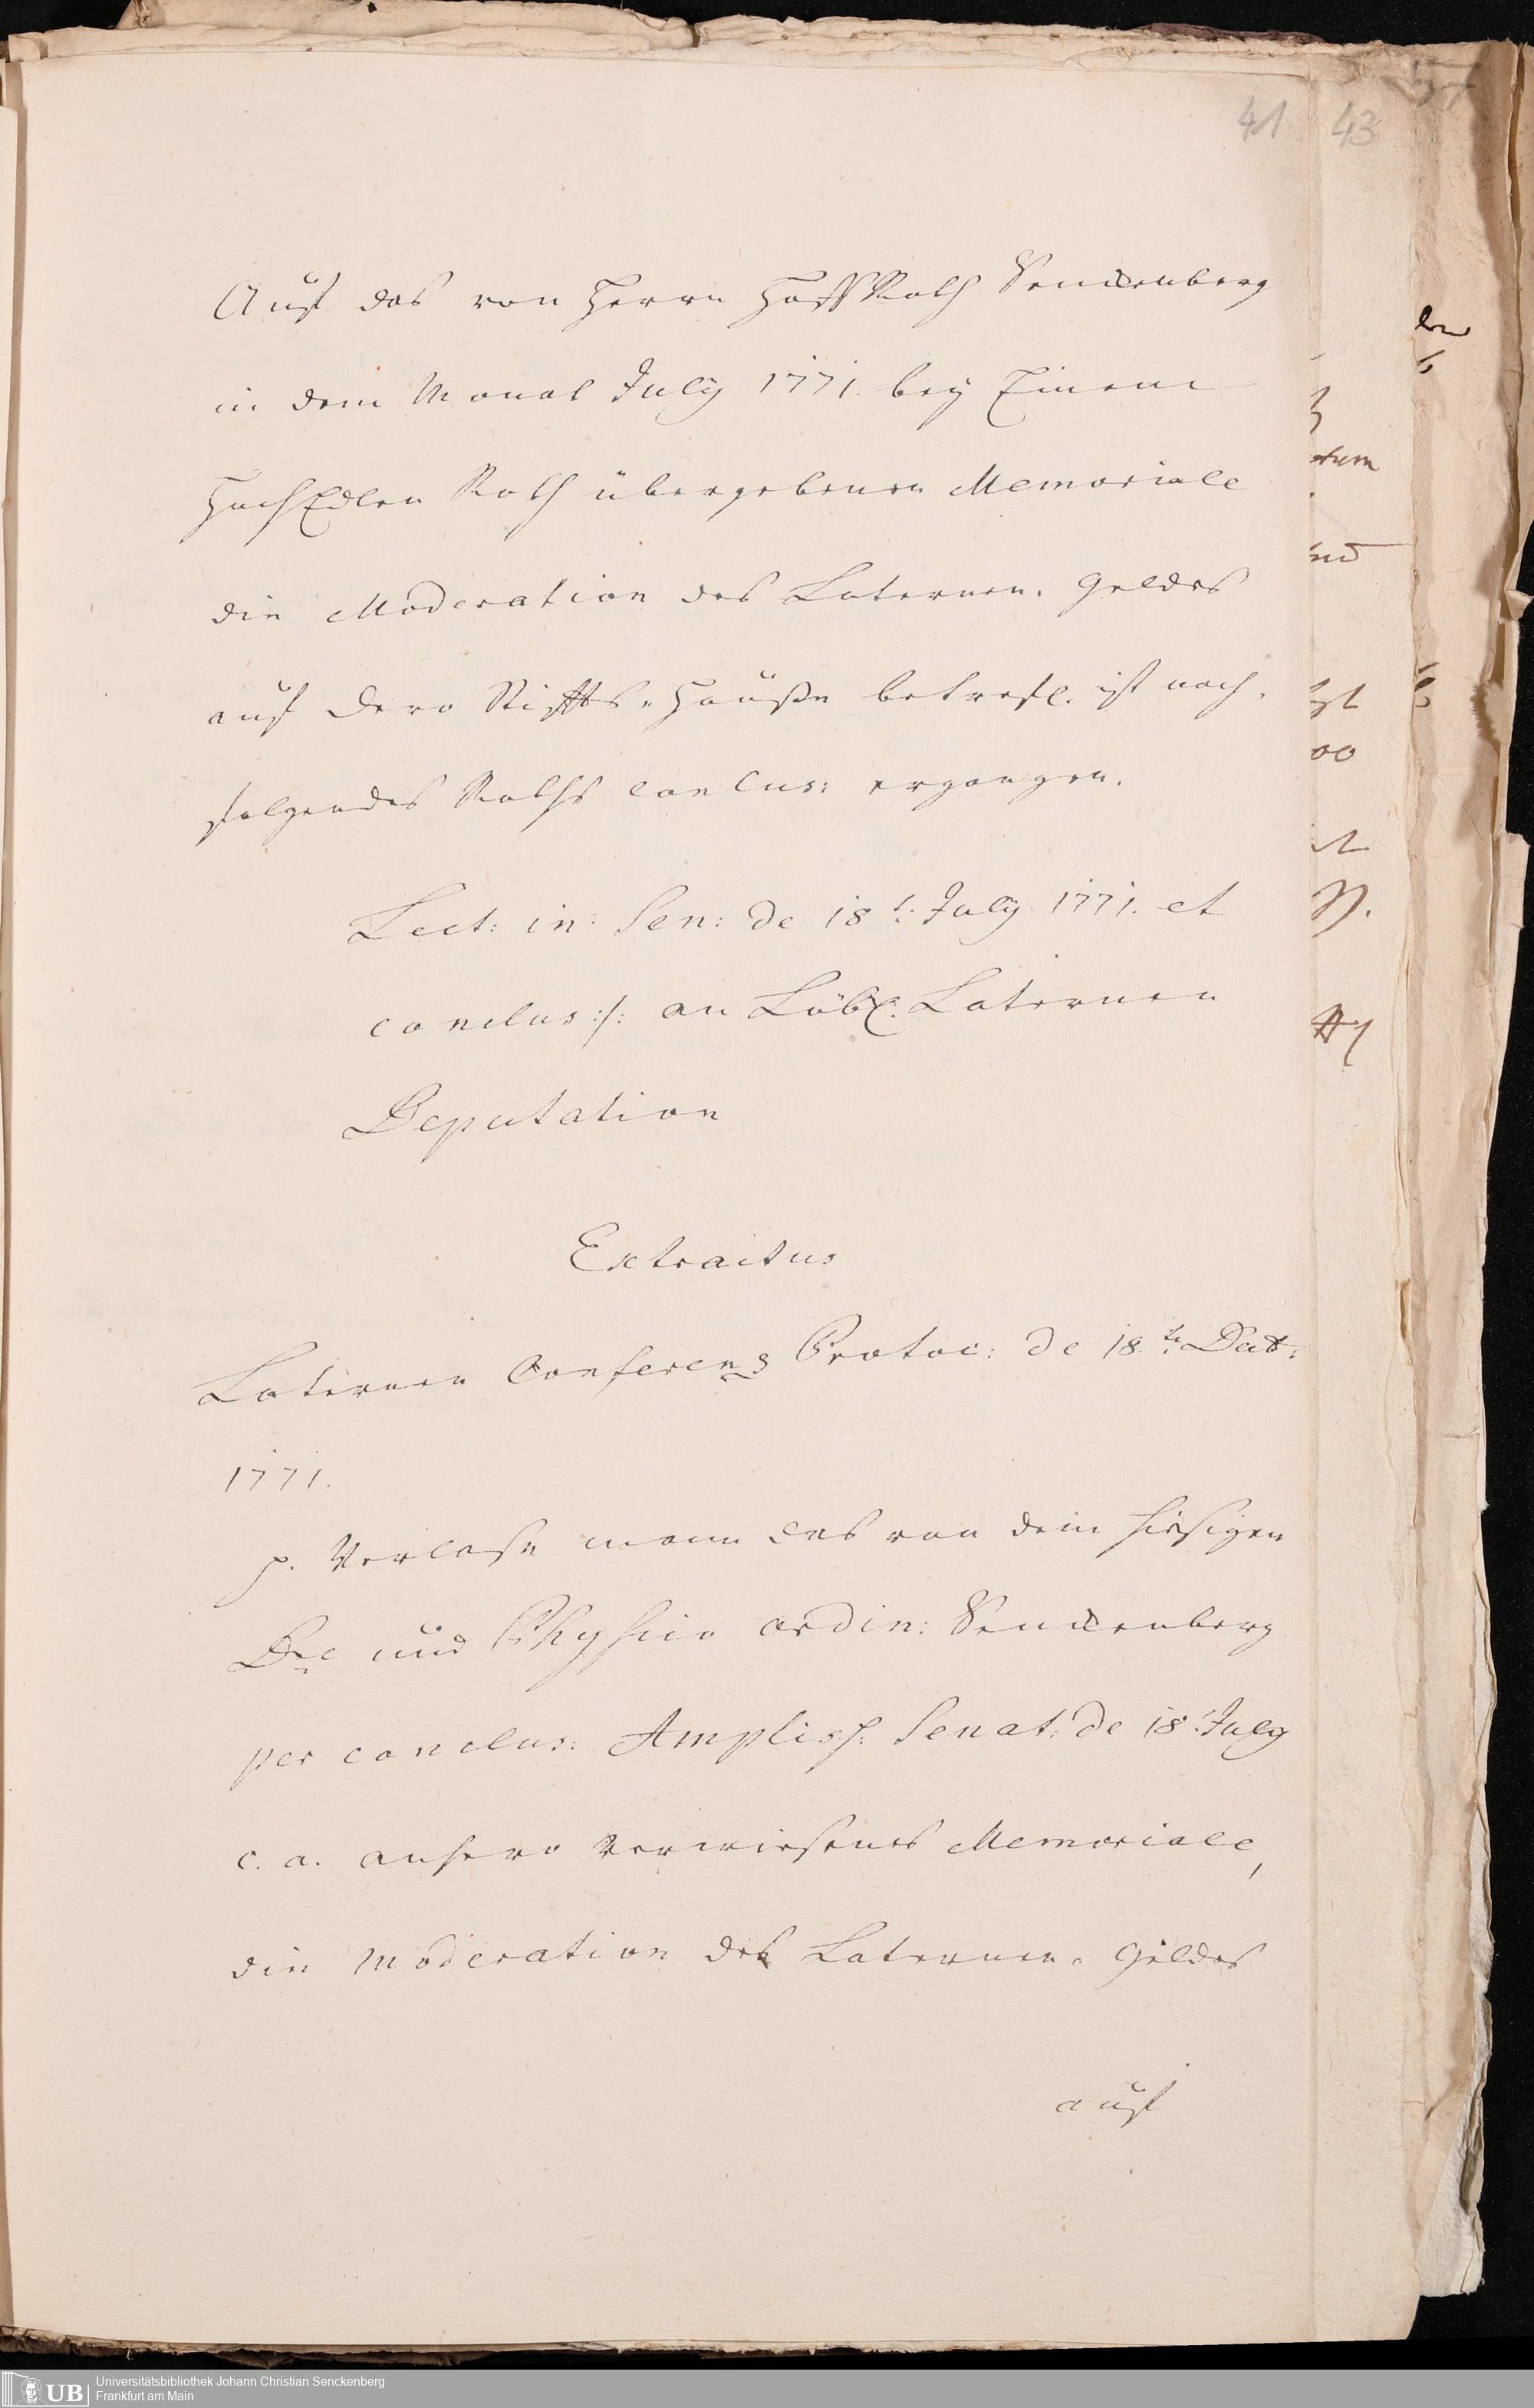 41 43
Auf das von Herrn HoffRath Senckenberg
in dem Monat July 1771. bey Einem
HochEdlen Rath übergebenen Memoriale
die Moderation des Laternen-Geldes
auf Dero Stiffts-Häuße betrefl. ist nach-
folgendes Raths conclus: ergangen.
Lect: in: Sen: de 18t: July 1771. et
conclus:/: an Löbl. Laternen
Deputation
Extractus
Laternen Conferenz Protoc: de 18.te Oct:
1771.
p. Verlase mann das von dem hiesigen
Dre und Physico ordin: Senckenberg
per conclus: Ampliss: Senat: de 18. July
c. a. anhero verwiesenes Memoriale,
die Moderation des Laternen-Geldes
auf
UB
Universitätsbibliothek Johann Christian Senckenberg
Frankfurt am Main